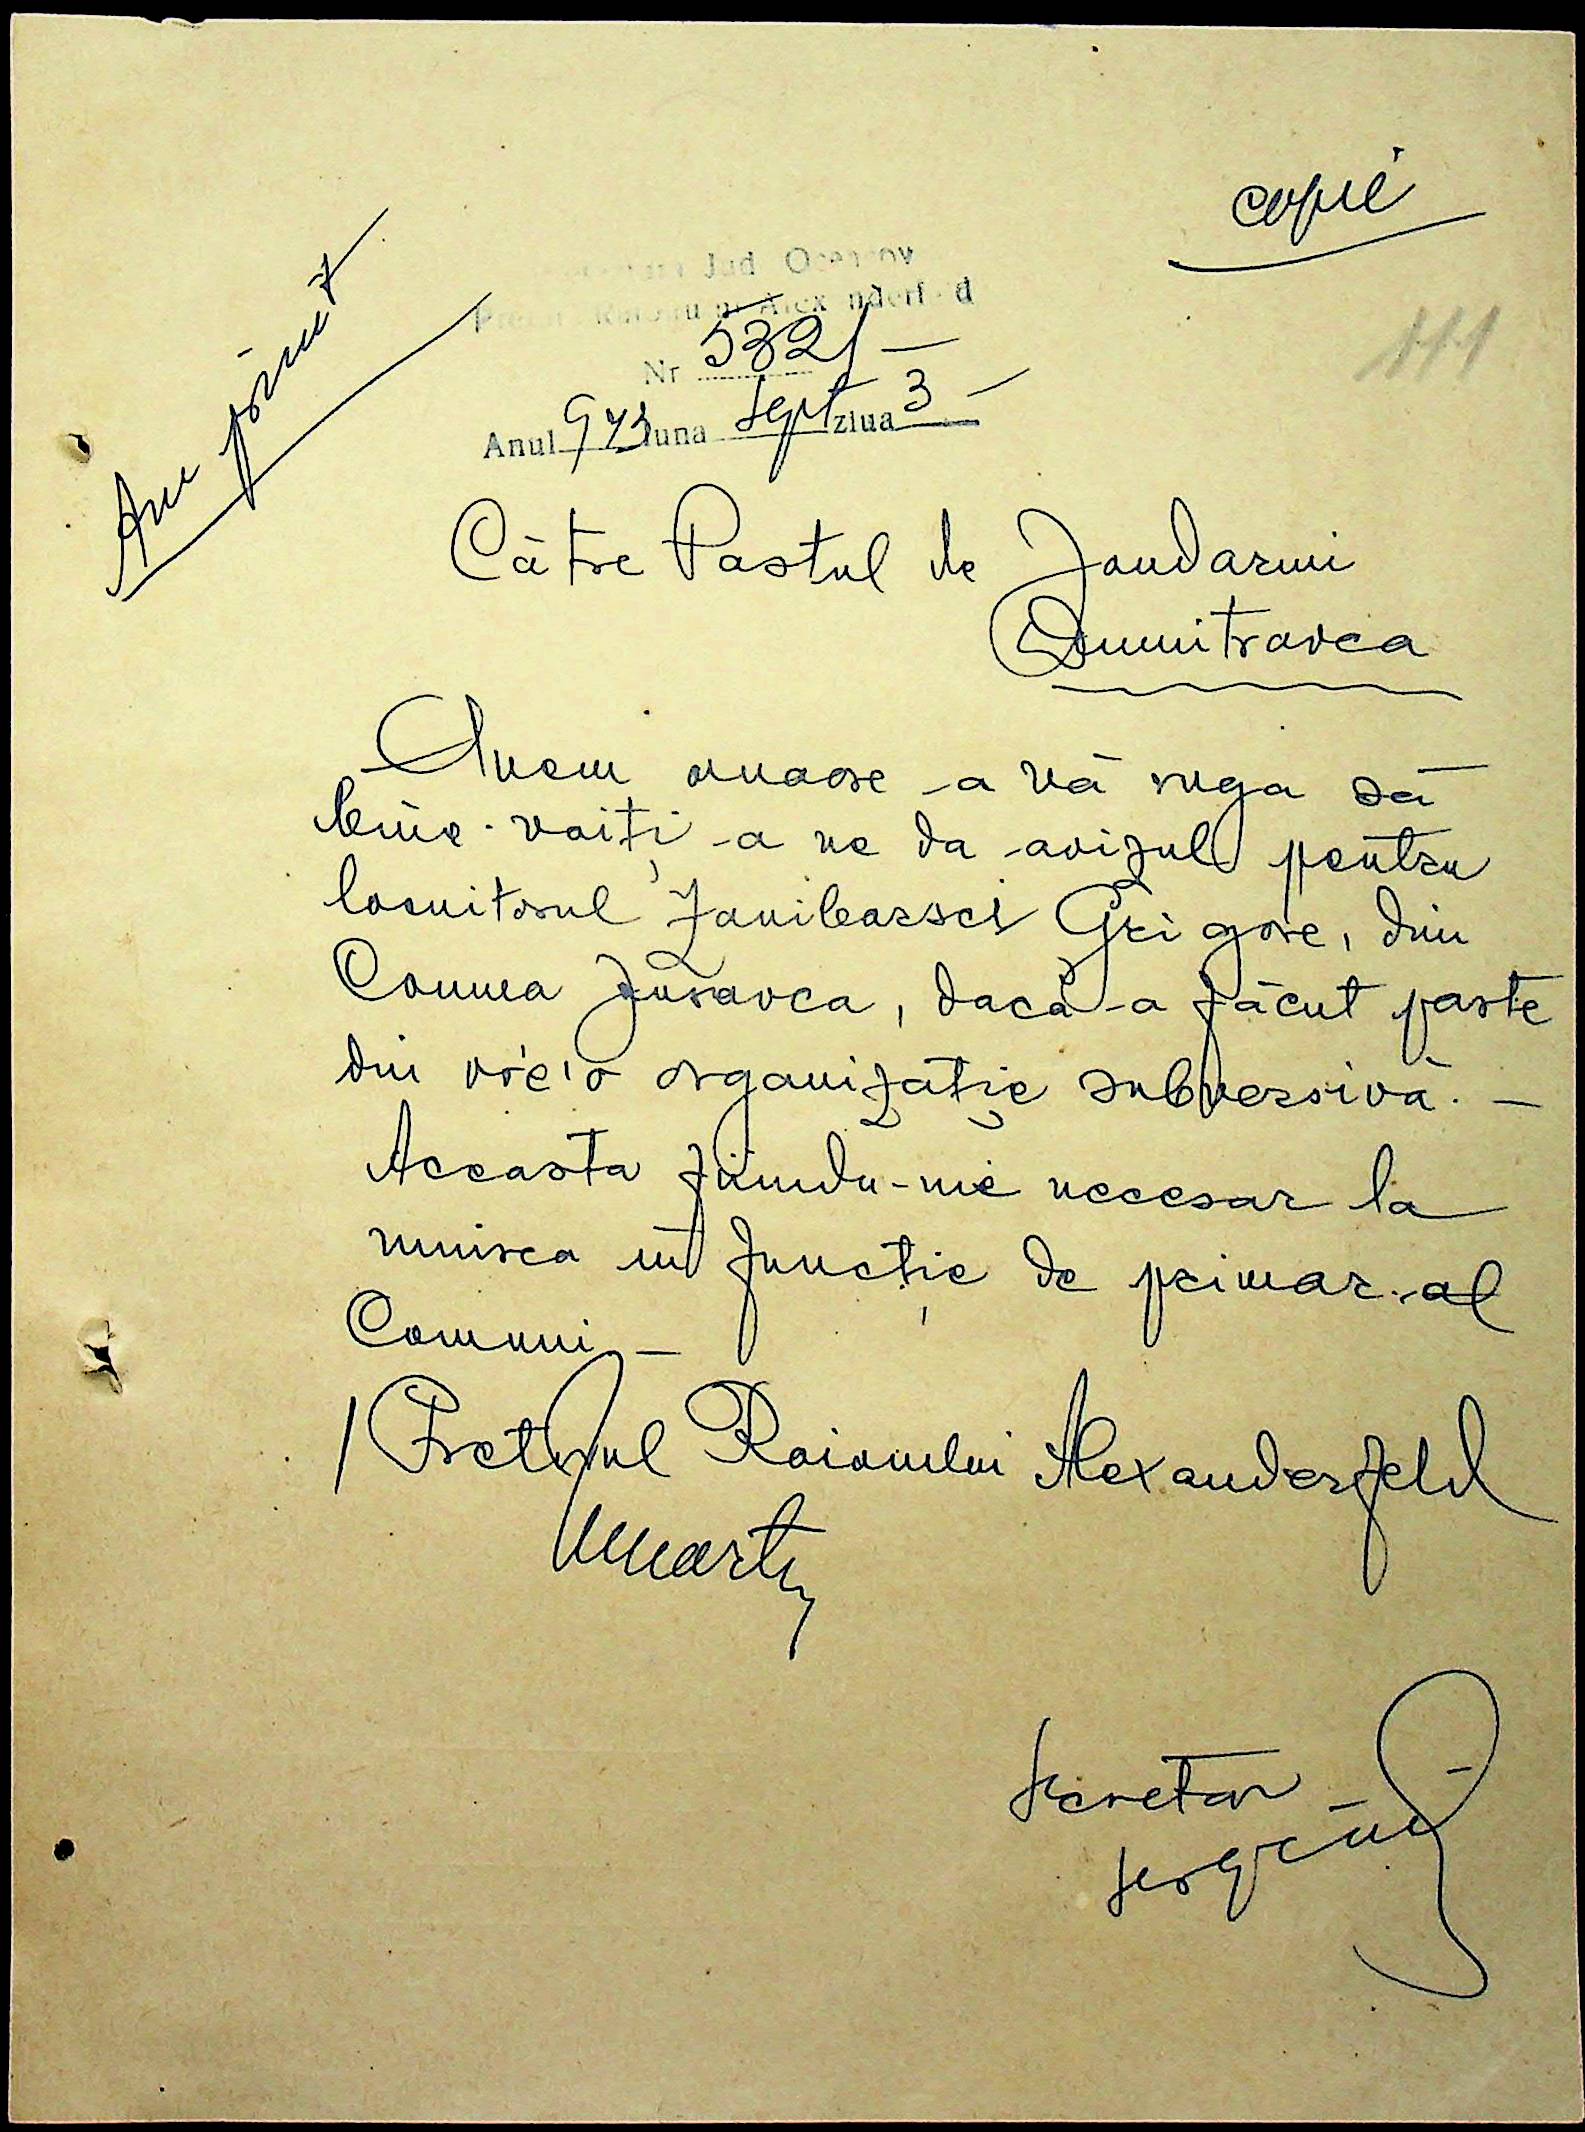 copie
111
Am primit
Jud Oceacov
Alexanderfeld
Nr 5321 —
Anul 943 luna Sept ziua 3 —
Către Postul de Jandarmi
Dumitravca
Avem onoare -a vă ruga să
bine-voiți -a ne da avizul pentru
locuitorul Zanibarsci Grigore, din
Comuna Juravca, dacă -a făcut parte
din vre'o organizație subversivă. —
Aceasta fiindu-ne necesar la
numirea în funcție de primar al
Comuni —
/ Pretorul Raionului Alexanderfeld
Secretar